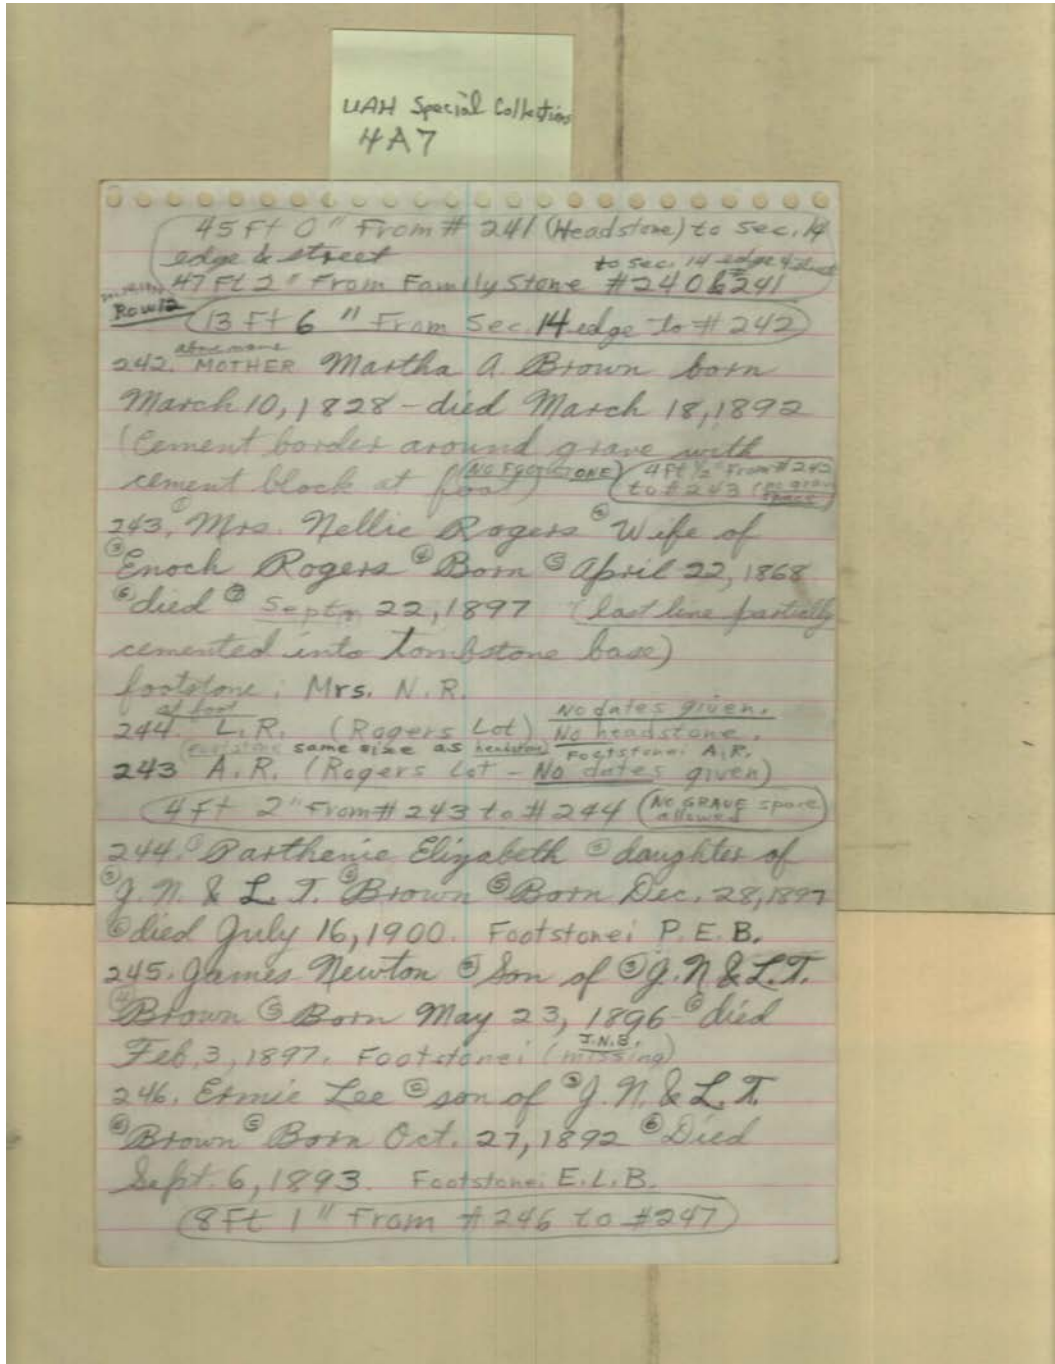 UAH Special Collections
4A7
45 Ft 0" From # 241 (Headstone) to sec. 14
edge & street
to sec. 14 edge & street
47 Ft 2" From Family Stone #240 & 241
Row 12
(13 Ft 6" From Sec. 14 edge to # 242)
above name
242. MOTHER Martha A. Brown born
March 10, 1828 - died March 18, 1892
(Cement border around grave with
cement block at foot) (NO FOOTSTONE) (4 Ft ½" From # 242
to # 243 (no grave
space)
243. ① Mrs. Nellie Rogers ② Wife of
③ Enoch Rogers ④ Born ⑤ April 22, 1868
⑥ died ⑦ Sept. 22, 1897 (last line partially
cemented into tombstone base)
footstone: Mrs. N.R.
at foot No dates given.
244. L.R. (Rogers Lot) No headstone.
(Footstone same size as headstone) Footstone: A.R.
243 A.R. (Rogers Lot - No dates given)
(4 Ft 2" From # 243 to # 244 (No GRAVE space
allowed)
244. ① Parthenie Elizabeth ② daughter of
③ J. N. & L. T. ④ Brown ⑤ Born Dec. 28, 1897
⑥ died July 16, 1900. Footstone: P. E. B.
245. James Newton ② Son of ③ J. N. & L. T.
④ Brown ⑤ Born May 23, 1896 - ⑥ died
J.N.B.
Feb. 3, 1897. Footstone: (missing)
246. Ermie Lee ② son of ③ J. N. & L. T.
④ Brown ⑤ Born Oct. 27, 1892 ⑥ Died
Sept. 6, 1893. Footstone: E. L. B.
(8 Ft 1" From # 246 to # 247)